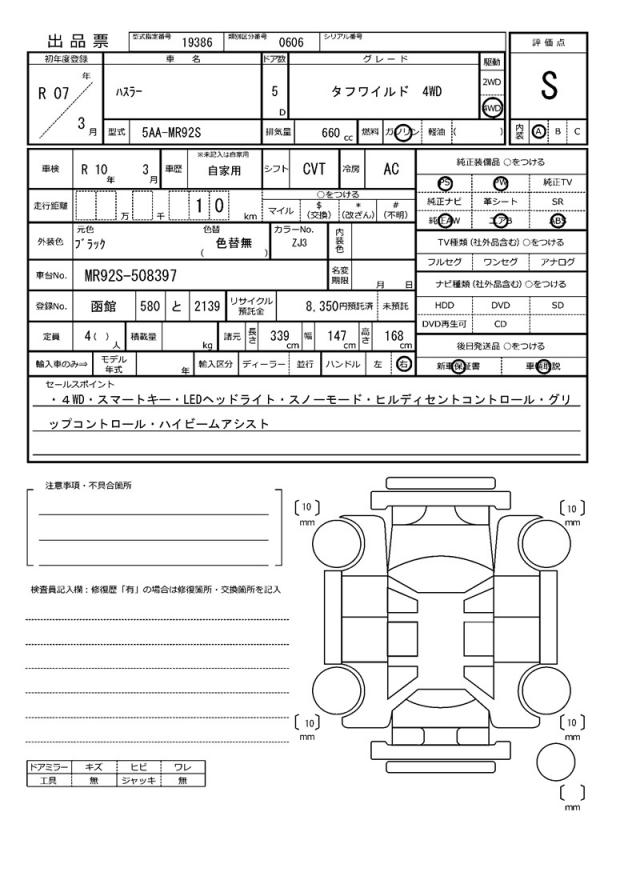 出品票 型式指定番号 19386 類別区分番号 0606 シリアル番号
評価点
S
内装 A B C
初年度登録 車名 ドア数 グレード 駆動
R 07 年 3 月 ハスラー 5 D タフワイルド 4WD 2WD 4WD
型式 5AA-MR92S 排気量 660 cc 燃料 ガソリン 軽油 ( )
車検 R 10 年 3 月 車歴 ※未記入は自家用 自家用 シフト CVT 冷房 AC
走行距離 万 千 1 0 km
○をつける
マイル $(交換) *(改ざん) #(不明)
外装色 元色 ブラック 色替 色替無 ( ) カラーNo. ZJ3 内装色
車台No. MR92S-508397 名変期限 月 日
登録No. 函館 580 と 2139 リサイクル預託金 8,350円預託済 未預託
定員 4( ) 人 積載量 kg 諸元 長さ 339 cm 幅 147 cm 高さ 168 cm
輸入車のみ⇒ モデル年式 年 輸入区分 ディーラー 並行 ハンドル 左 右
純正装備品 ○をつける
PS PW 純正TV
純正ナビ 革シート SR
純正AW エアB ABS
TV種類 (社外品含む) ○をつける
フルセグ ワンセグ アナログ
ナビ種類 (社外品含む) ○をつける
HDD DVD SD
DVD再生可 CD
後日発送品 ○をつける
新車保証書 車輌取説
セールスポイント
・4WD・スマートキー・LEDヘッドライト・スノーモード・ヒルディセントコントロール・グリ
ップコントロール・ハイビームアシスト
注意事項・不具合箇所
検査員記入欄：修復歴「有」の場合は修復箇所・交換箇所を記入
〔 10 〕 mm
〔 10 〕 mm
〔 10 〕 mm
〔 10 〕 mm
〔 〕 mm
ドアミラー キズ ヒビ ワレ
工具 無 ジャッキ 無